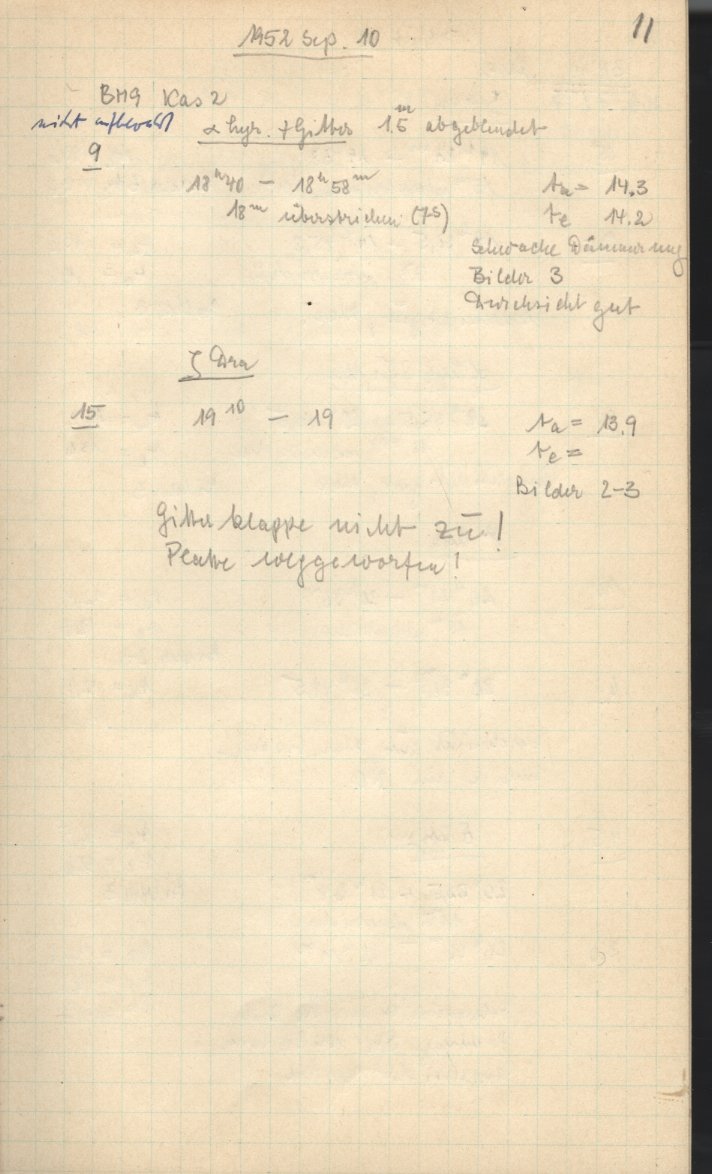 11
1952 Sep. 10
BH9 Kas 2
nicht aufbewahrt α Lyr. + Gitter 1.5ᵐ abgeblendet
9
18ʰ40 — 18ʰ58ᵐ tₐ= 14.3
18ᵐ überstrichen (75) tₑ 14.2
Schwache Dämmerung
Bilder 3
Durchsicht gut
ζ Dra
15 19¹⁰ — 19 tₐ= 13.9
tₑ=
Bilder 2-3
Gitterklappe nicht zu!
Platte weggeworfen!